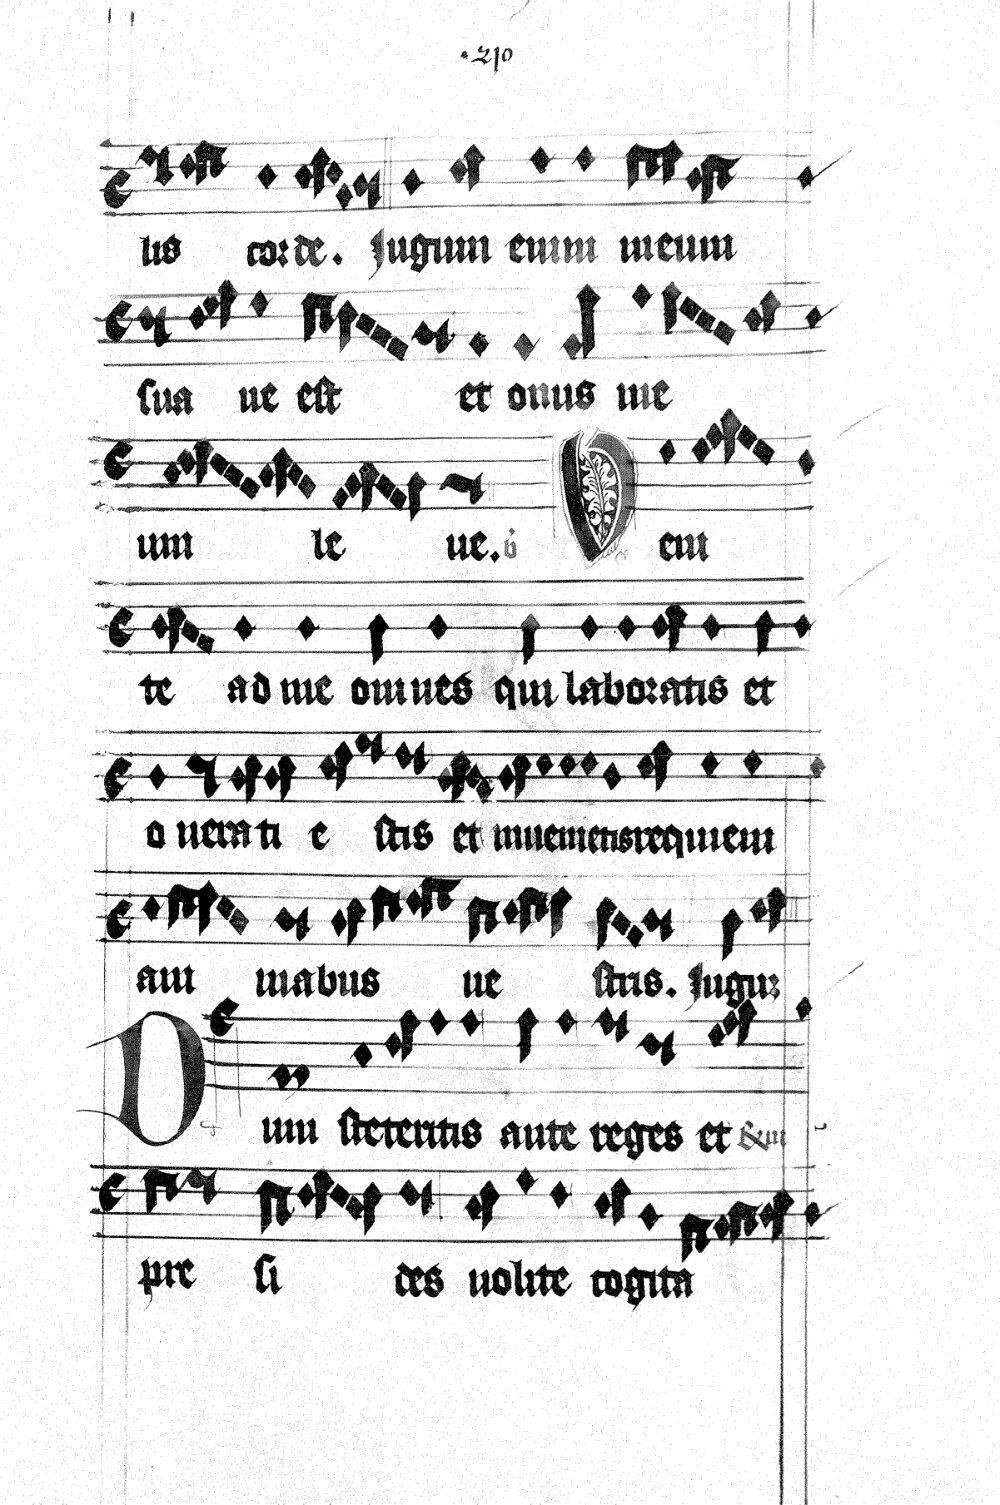 .210
lis corde. Jugum enim meum
sua ue est et onus me
um le ue. V em
te ad me omnes qui laboratis et
o nerati e stis et inuenietis requiem
ani mabus ue stris. Jugum
Dum steteritis ante reges et
pre si des nolite cogita